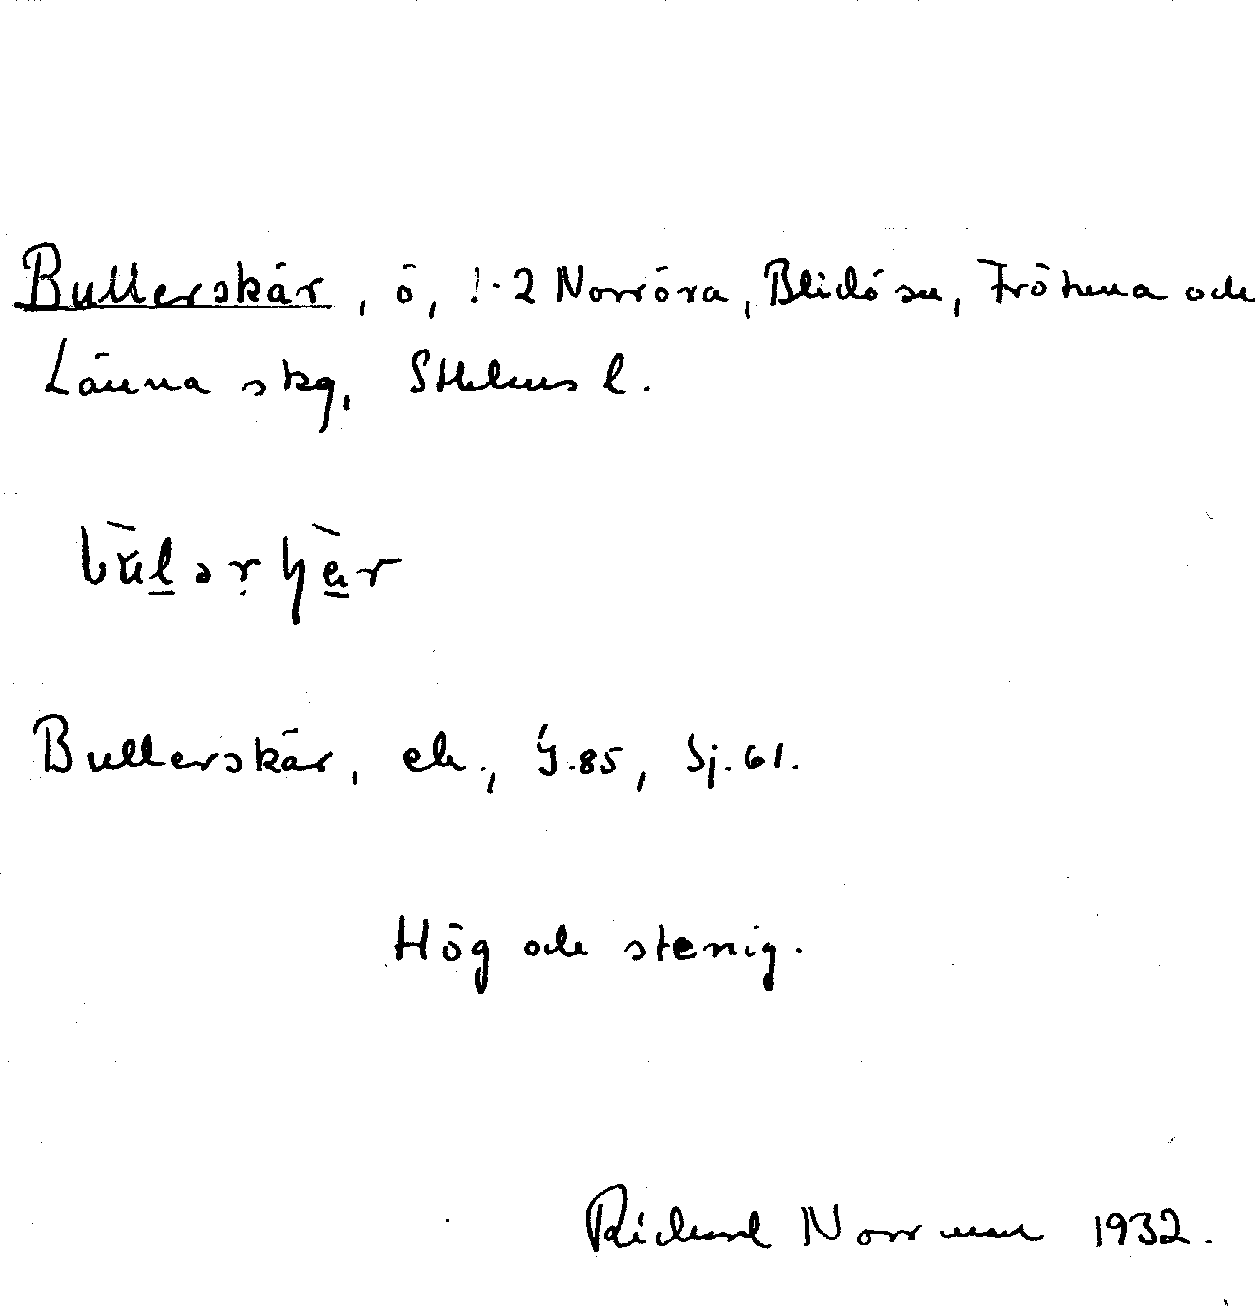 Bullerskär, ö, 1-2 Norröra, Blidö sn, Frötuna och
Länna skg, Sthlms l.
Bullerskär, ek., G.85, Sj.61.
Hög och stenig.
Richard Norrman 1932.